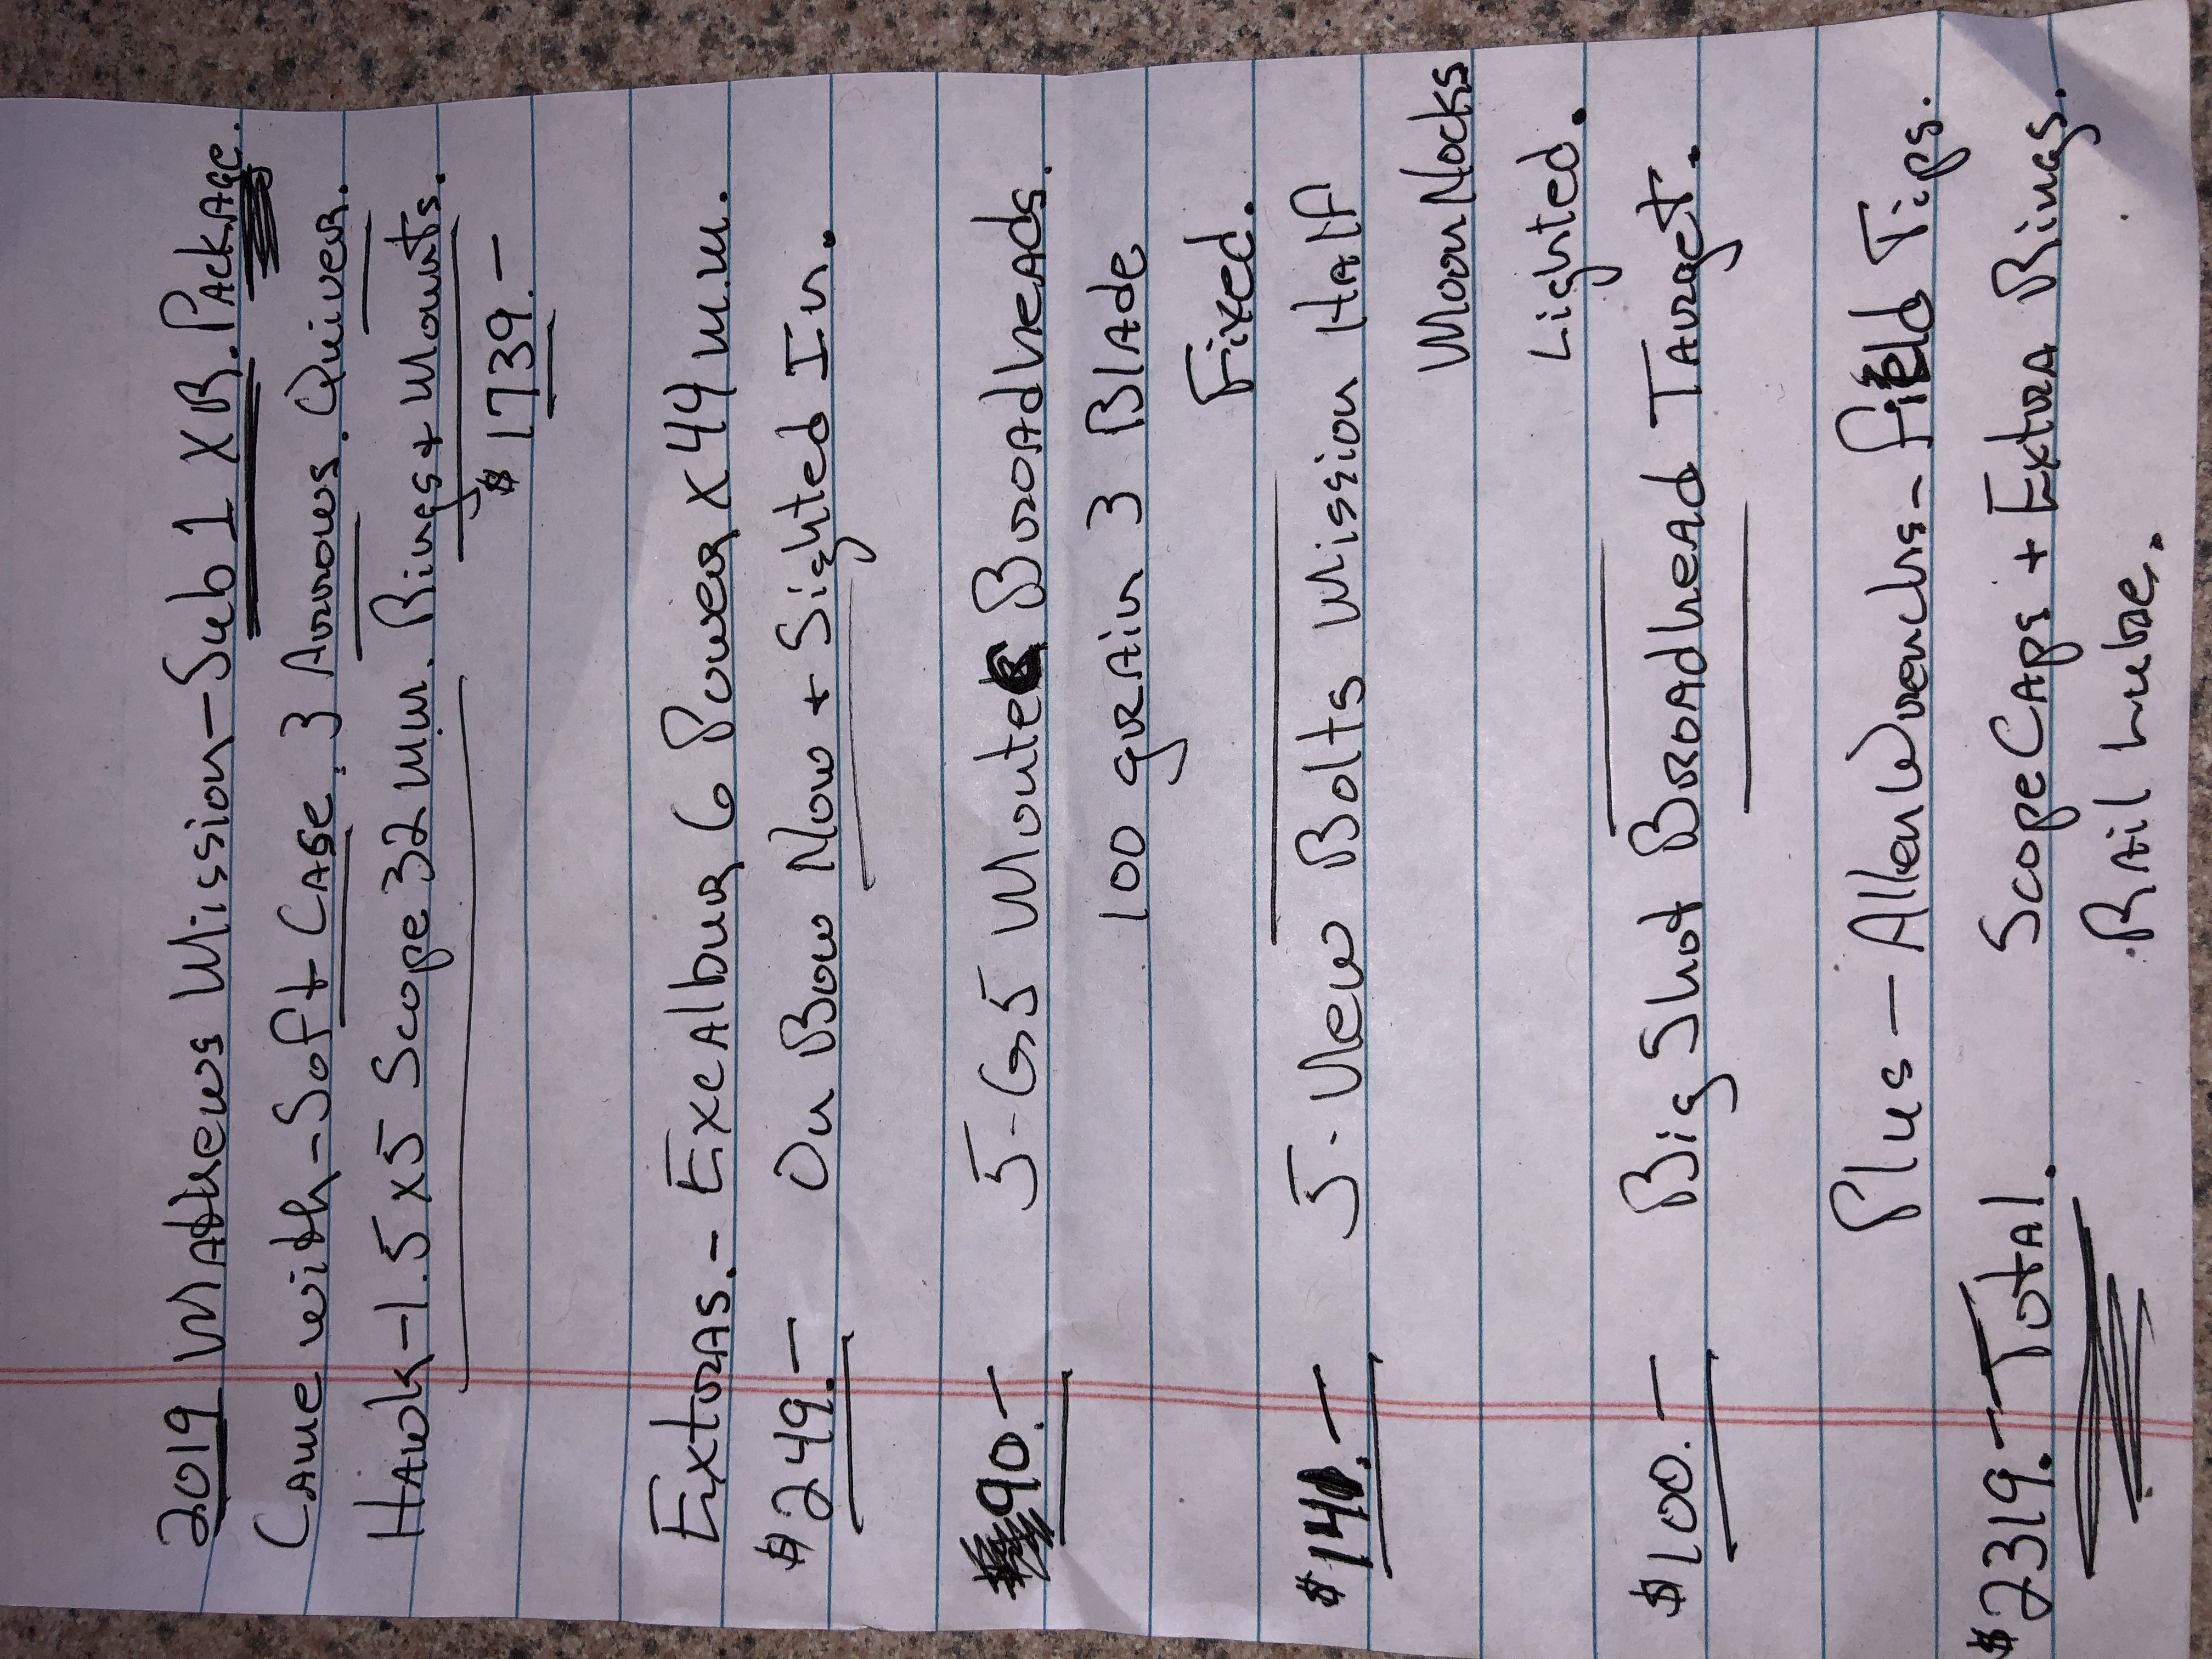 2019 Mathews Mission-Sub 1 XR. Package.
Came with-Soft Case, 3 Arrows. Quiver.
Hawk-1.5x5 Scope 32 mm. Rings + Mounts.
$1739.-
Extras.- Excalbur 6 Power X 44 m.m.
$249.- On Bow Now + Sighted In.
90.- 5-G5 Montec Broadheads.
100 grain 3 Blade
Fixed.
$141.- 5-New Bolts Mission Half
Moon Nocks
Lighted.
$100.- Big Shot Broadhead Target.
Plus - Allen Wrenchs - Field Tips.
$2319.- Total. Scope Caps + Extra Rings.
Rail Lube.